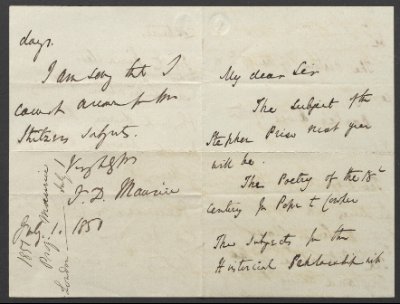 days.
I am sorry that I
cannot answer for the
Subjects.
F. D. Maurice
July 1. 1850
Prof. Maurice
London July 1
My dear Sir
The subject of the
Stephen Prize next year
will be.
The Poetry of the 18th
century from Pope to Cowper
The Subjects for the
Historical